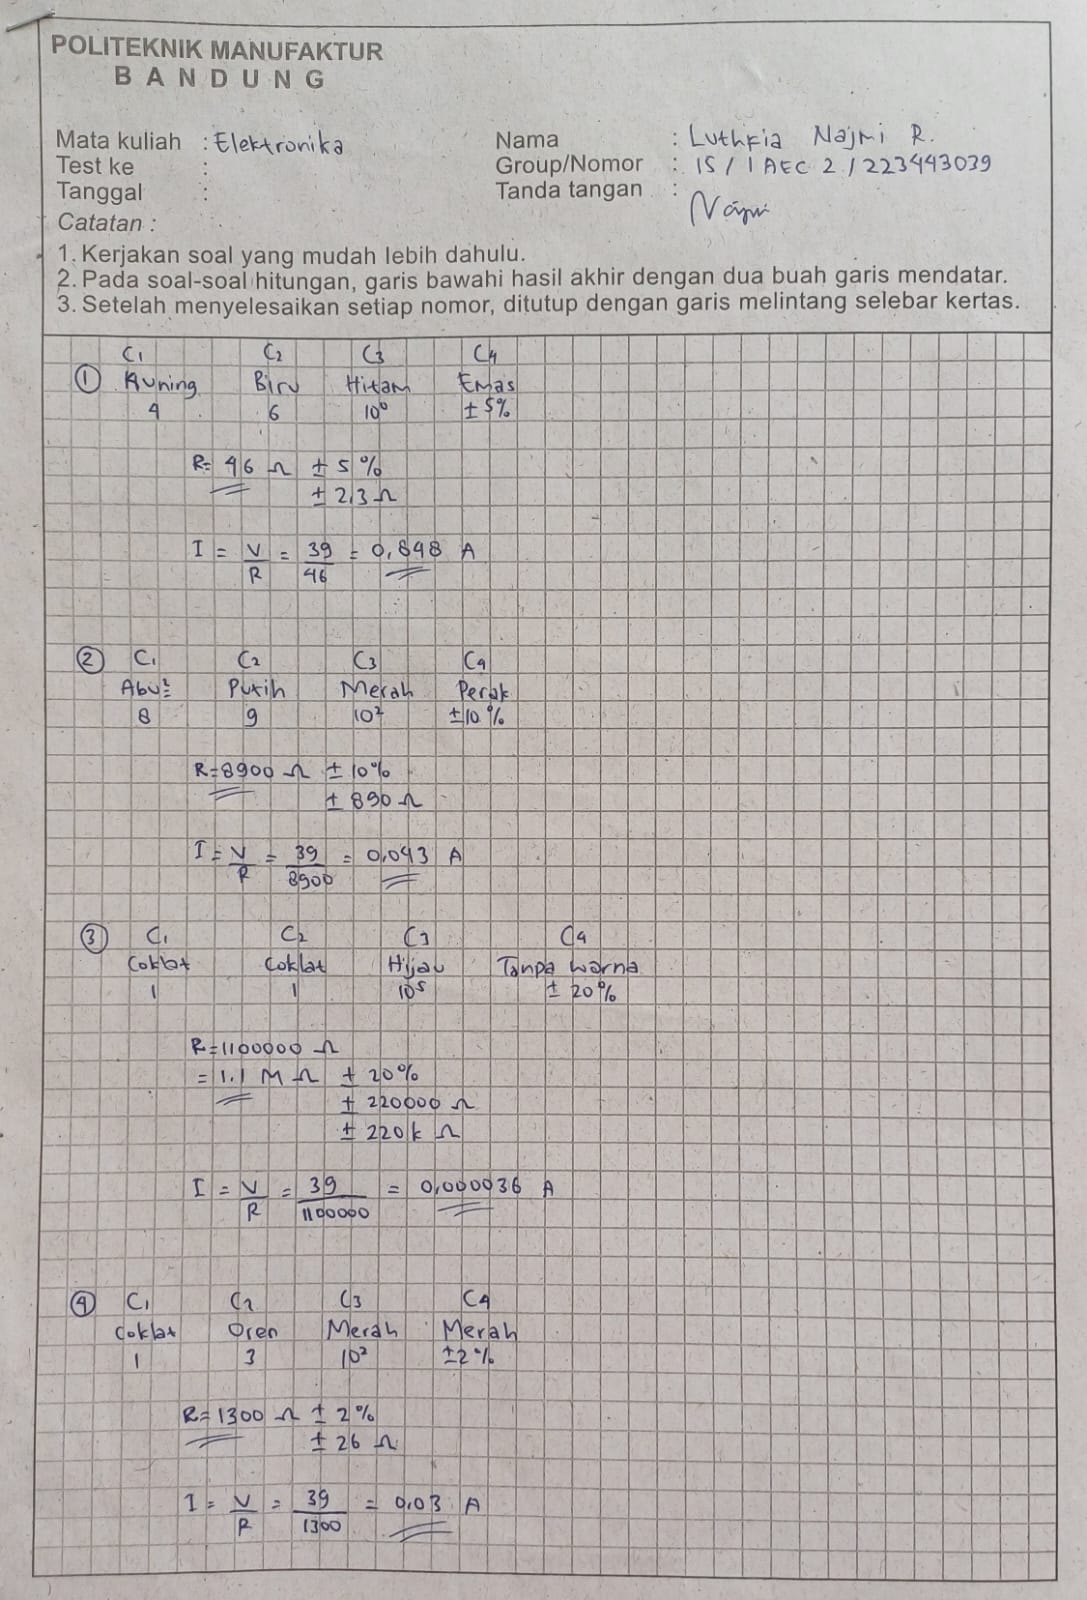 POLITEKNIK MANUFAKTUR
BANDUNG
Mata kuliah : Elektronika
Test ke :
Tanggal :
Nama : Luthfia Najmi R.
Group/Nomor : 15 / 1 AEC 2 / 223443039
Tanda tangan :
Catatan :
1. Kerjakan soal yang mudah lebih dahulu.
2. Pada soal-soal hitungan, garis bawahi hasil akhir dengan dua buah garis mendatar.
3. Setelah menyelesaikan setiap nomor, ditutup dengan garis melintang selebar kertas.
C1 C2 C3 C4
① Kuning Biru Hitam Emas
4 6 10⁰ ± 5%
R = 46 Ω ± 5 %
± 2,3 Ω
I = V/R = 39/46 = 0,848 A
② C1 C2 C3 C4
Abu² Putih Merah Perak
8 9 10² ±10 %
R = 8900 Ω ± 10%
± 890 Ω
I = V/R = 39/8900 = 0,043 A
③ C1 C2 C3 C4
Coklat Coklat Hijau Tanpa warna
1 1 10⁵ ± 20%
R = 1100000 Ω
= 1.1 M Ω ± 20%
± 220000 Ω
± 220 k Ω
I = V/R = 39/1100000 = 0,000036 A
④ C1 C2 C3 C4
Coklat Oren Merah Merah
1 3 10² ±2%
R = 1300 Ω ± 2%
± 26 Ω
I = V/R = 39/1300 = 0,03 A